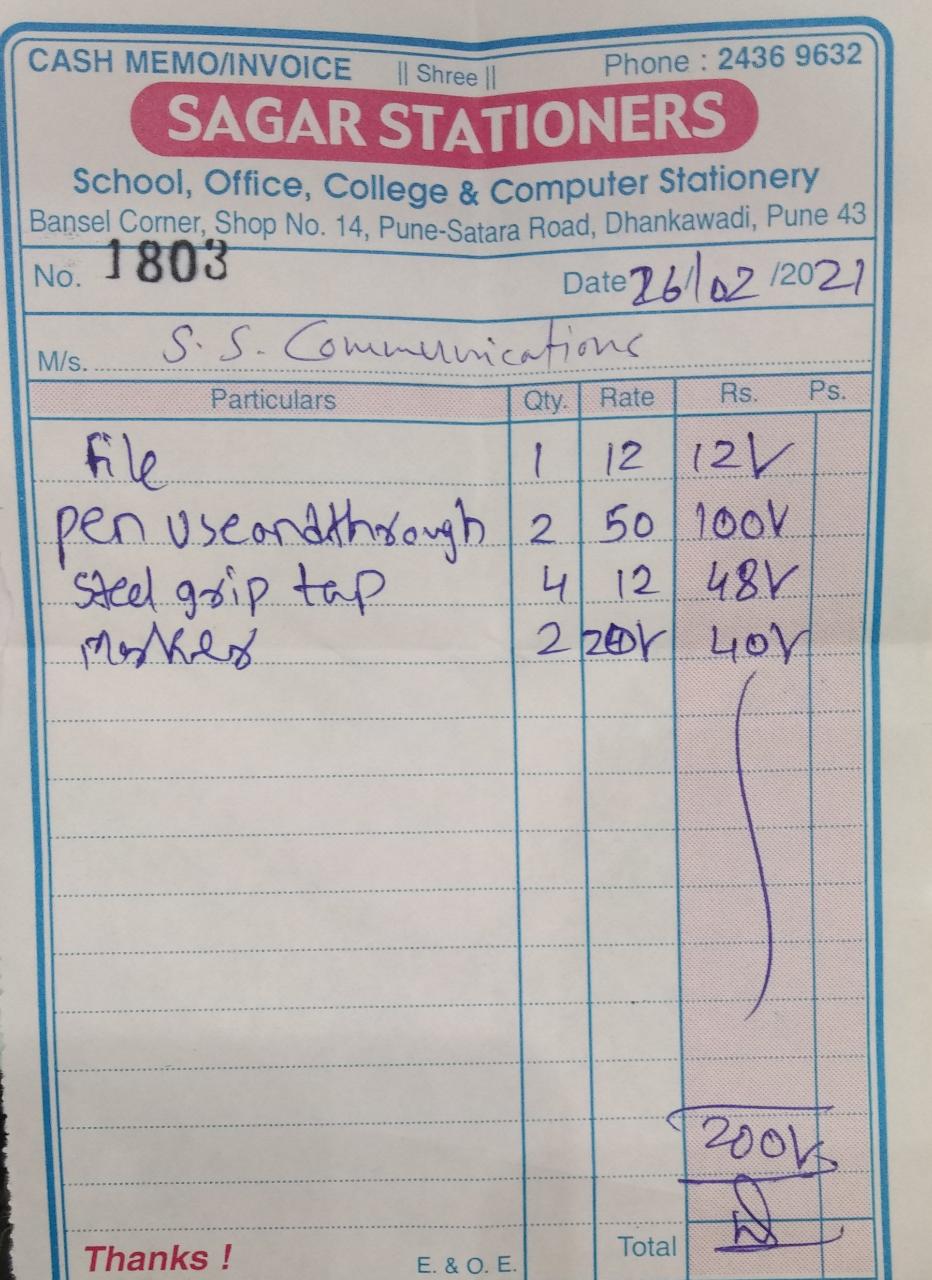 CASH MEMO/INVOICE || Shree || Phone : 2436 9632
SAGAR STATIONERS
School, Office, College & Computer Stationery
Bansel Corner, Shop No. 14, Pune-Satara Road, Dhankawadi, Pune 43
No. 1803 Date 26/02/2021
M/s. S. S. Communications
Particulars Qty. Rate Rs. Ps.
File 1 12 12
pen useandthrough 2 50 100
steel grip tap 4 12 48
marker 2 20 40
200
Total
Thanks ! E. & O. E.